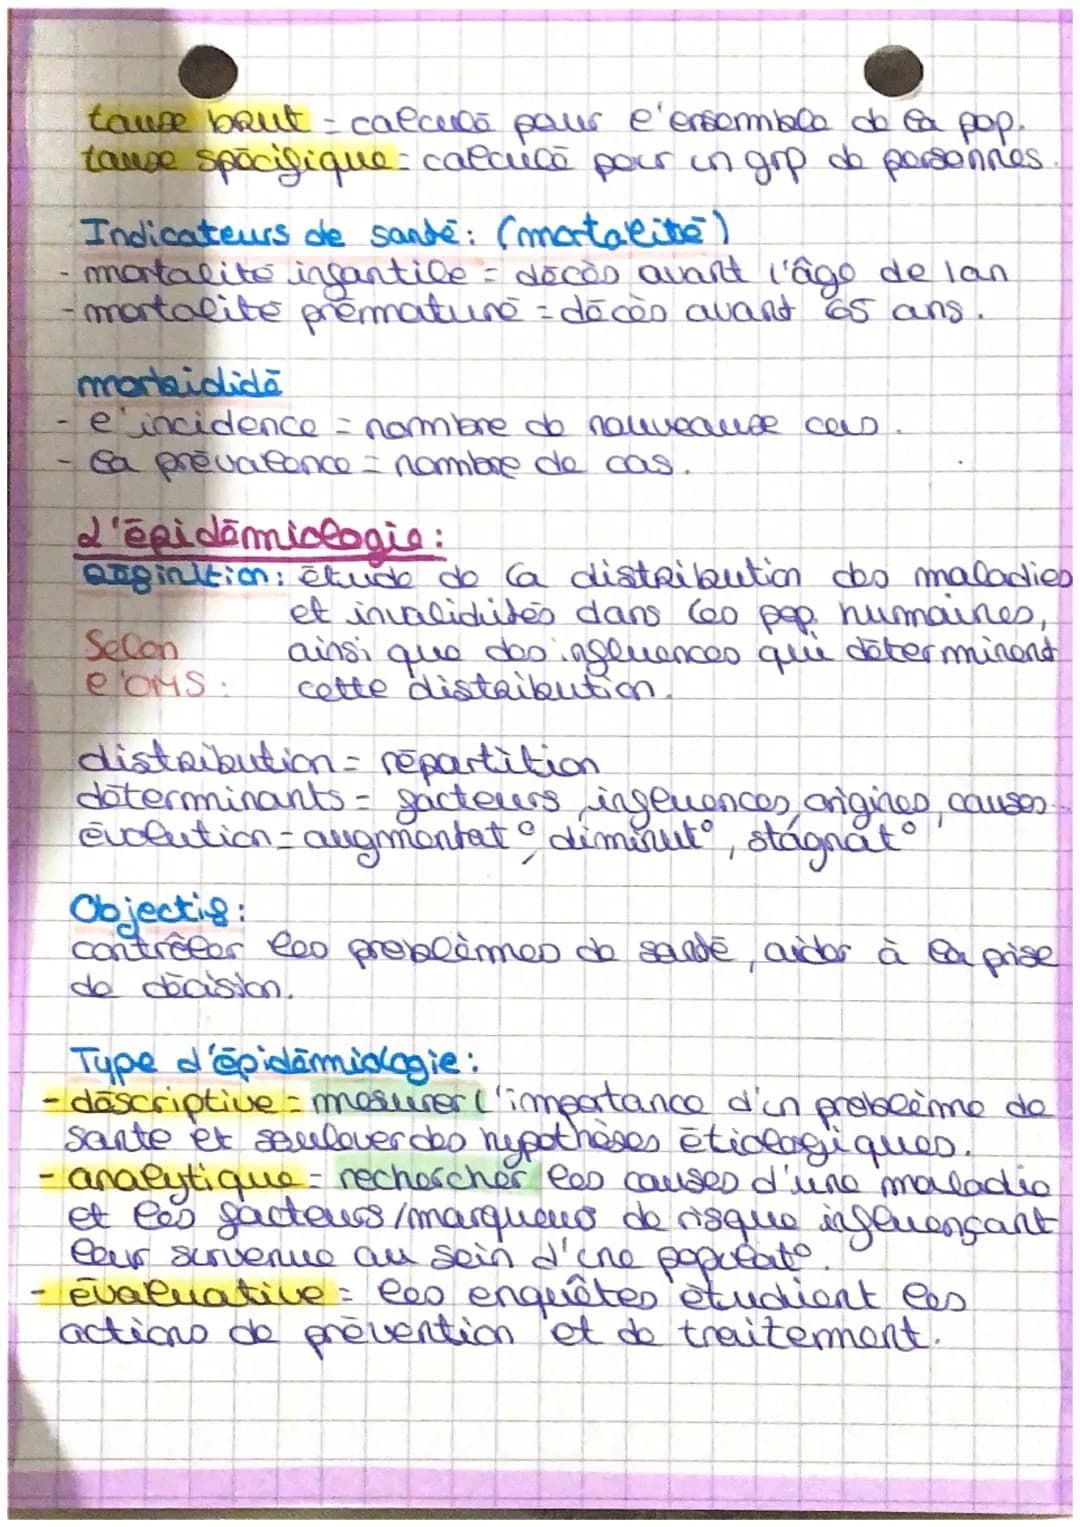 taux brut = calculé pour l'ensemble de la pop.
taux spécifique = calculé pour un grp de personnes.
Indicateurs de santé : (mortalité)
- mortalité infantile = décès avant l'âge de 1an
- mortalité prématuré = décès avant 65 ans.
morbididé
- l'incidence = nombre de nouveaux cas.
- la prévalence = nombre de cas.
L'épidémiologie :
Définition : étude de la distribution des maladies
et invalidités dans les pop. humaines,
Selon ainsi que des influences qui déterminent
l'OMS : cette distribution.
distribution = répartition
déterminants = facteurs, influences, origines, causes
évolution = augmentat°, diminut°, stagnat°
Objectif :
contrôler les problèmes de santé, aider à la prise
de décision.
Type d'épidémiologie :
- déscriptive = mesurer l'importance d'un problème de
santé et soulever des hypothèses étiologiques.
- analytique = rechercher les causes d'une maladie
et les facteurs/marqueurs de risque influençant
leur survenue au sein d'une populat°.
- évaluative = les enquêtes étudient les
actions de prévention et de traitement.